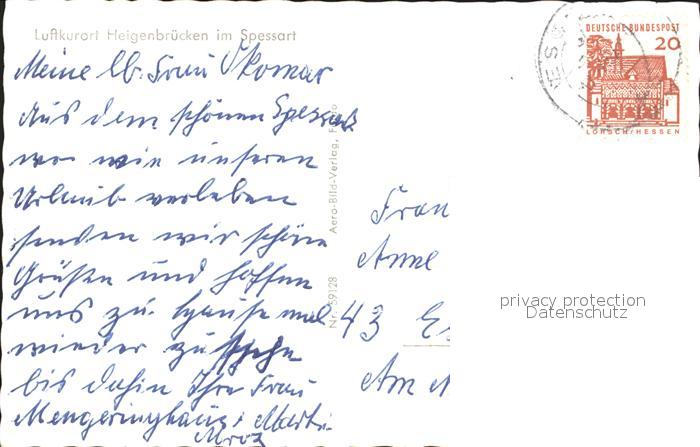 Luftkurort Heigenbrücken im Spessart
Meine lb. Frau Skomar
Aus dem schönen Spessart
wo wir unseren
Urlaub verleben
senden wir schöne
Grüße und hoffen
uns zu Hause mal
wieder zu sehn
bis dahin Ihre Frau
Mengeringhaus,
Nr. 59128 Aero-Bild-Verlag,
DEUTSCHE BUNDESPOST
20
LORSCH/HESSEN
Frau
Anne
43
Am
privacy protection
Datenschutz